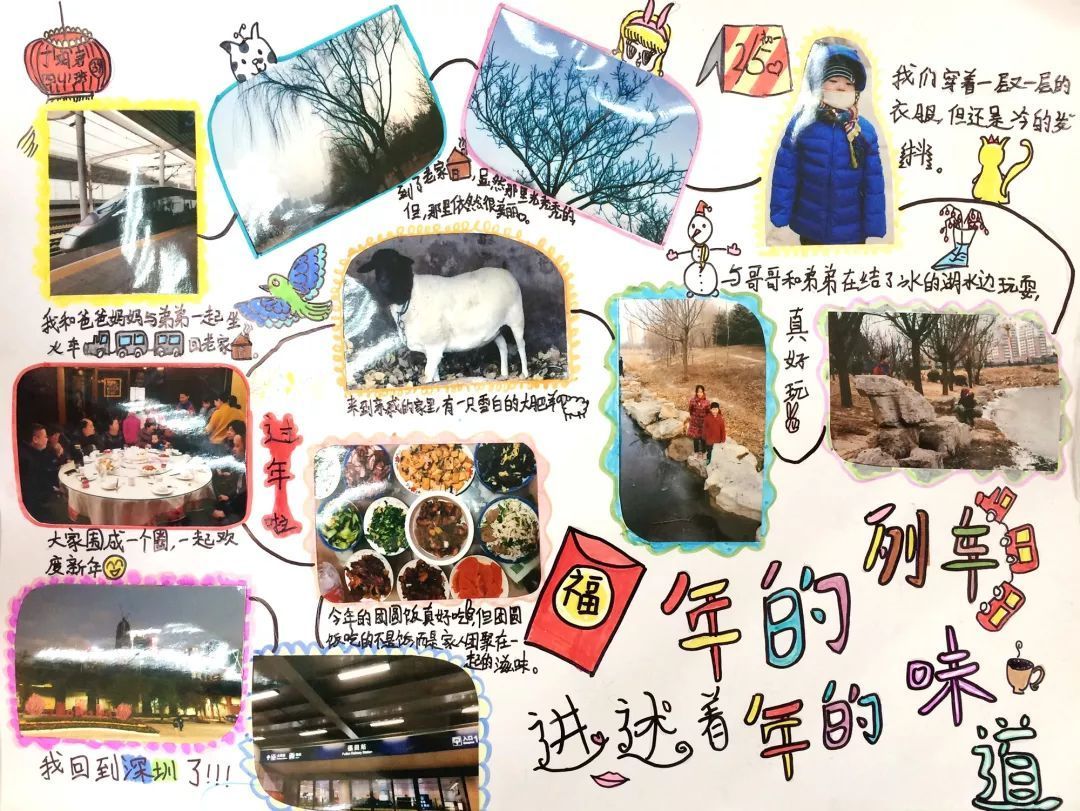 初一
2/5
我们穿着一层又一层的
衣服,但还是冷的发
到了老家,虽然那里光秃秃的
但,那里依然很美丽。
与哥哥和弟弟在结了冰的湖水边玩耍,
真好玩
我和爸爸妈妈与弟弟一起坐
火车回老家。
来到亲戚的家里,有一只雪白的大肥羊
过年啦
大家围成一个圈,一起欢
度新年
今年的团圆饭真好吃!但团圆
饭吃的不是饭而是家人团聚在一
起的滋味。
福
年的列车
讲述着年的味道
福田站
Futian Railway Station
入口1
我回到深圳了!!!